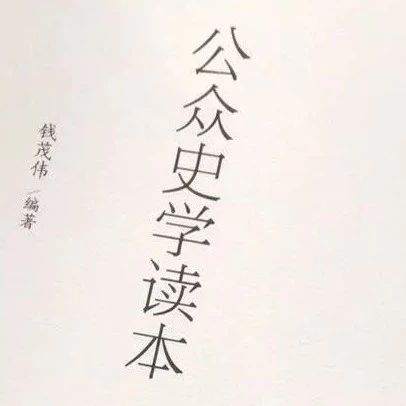 公众史学读本
钱茂伟/编著